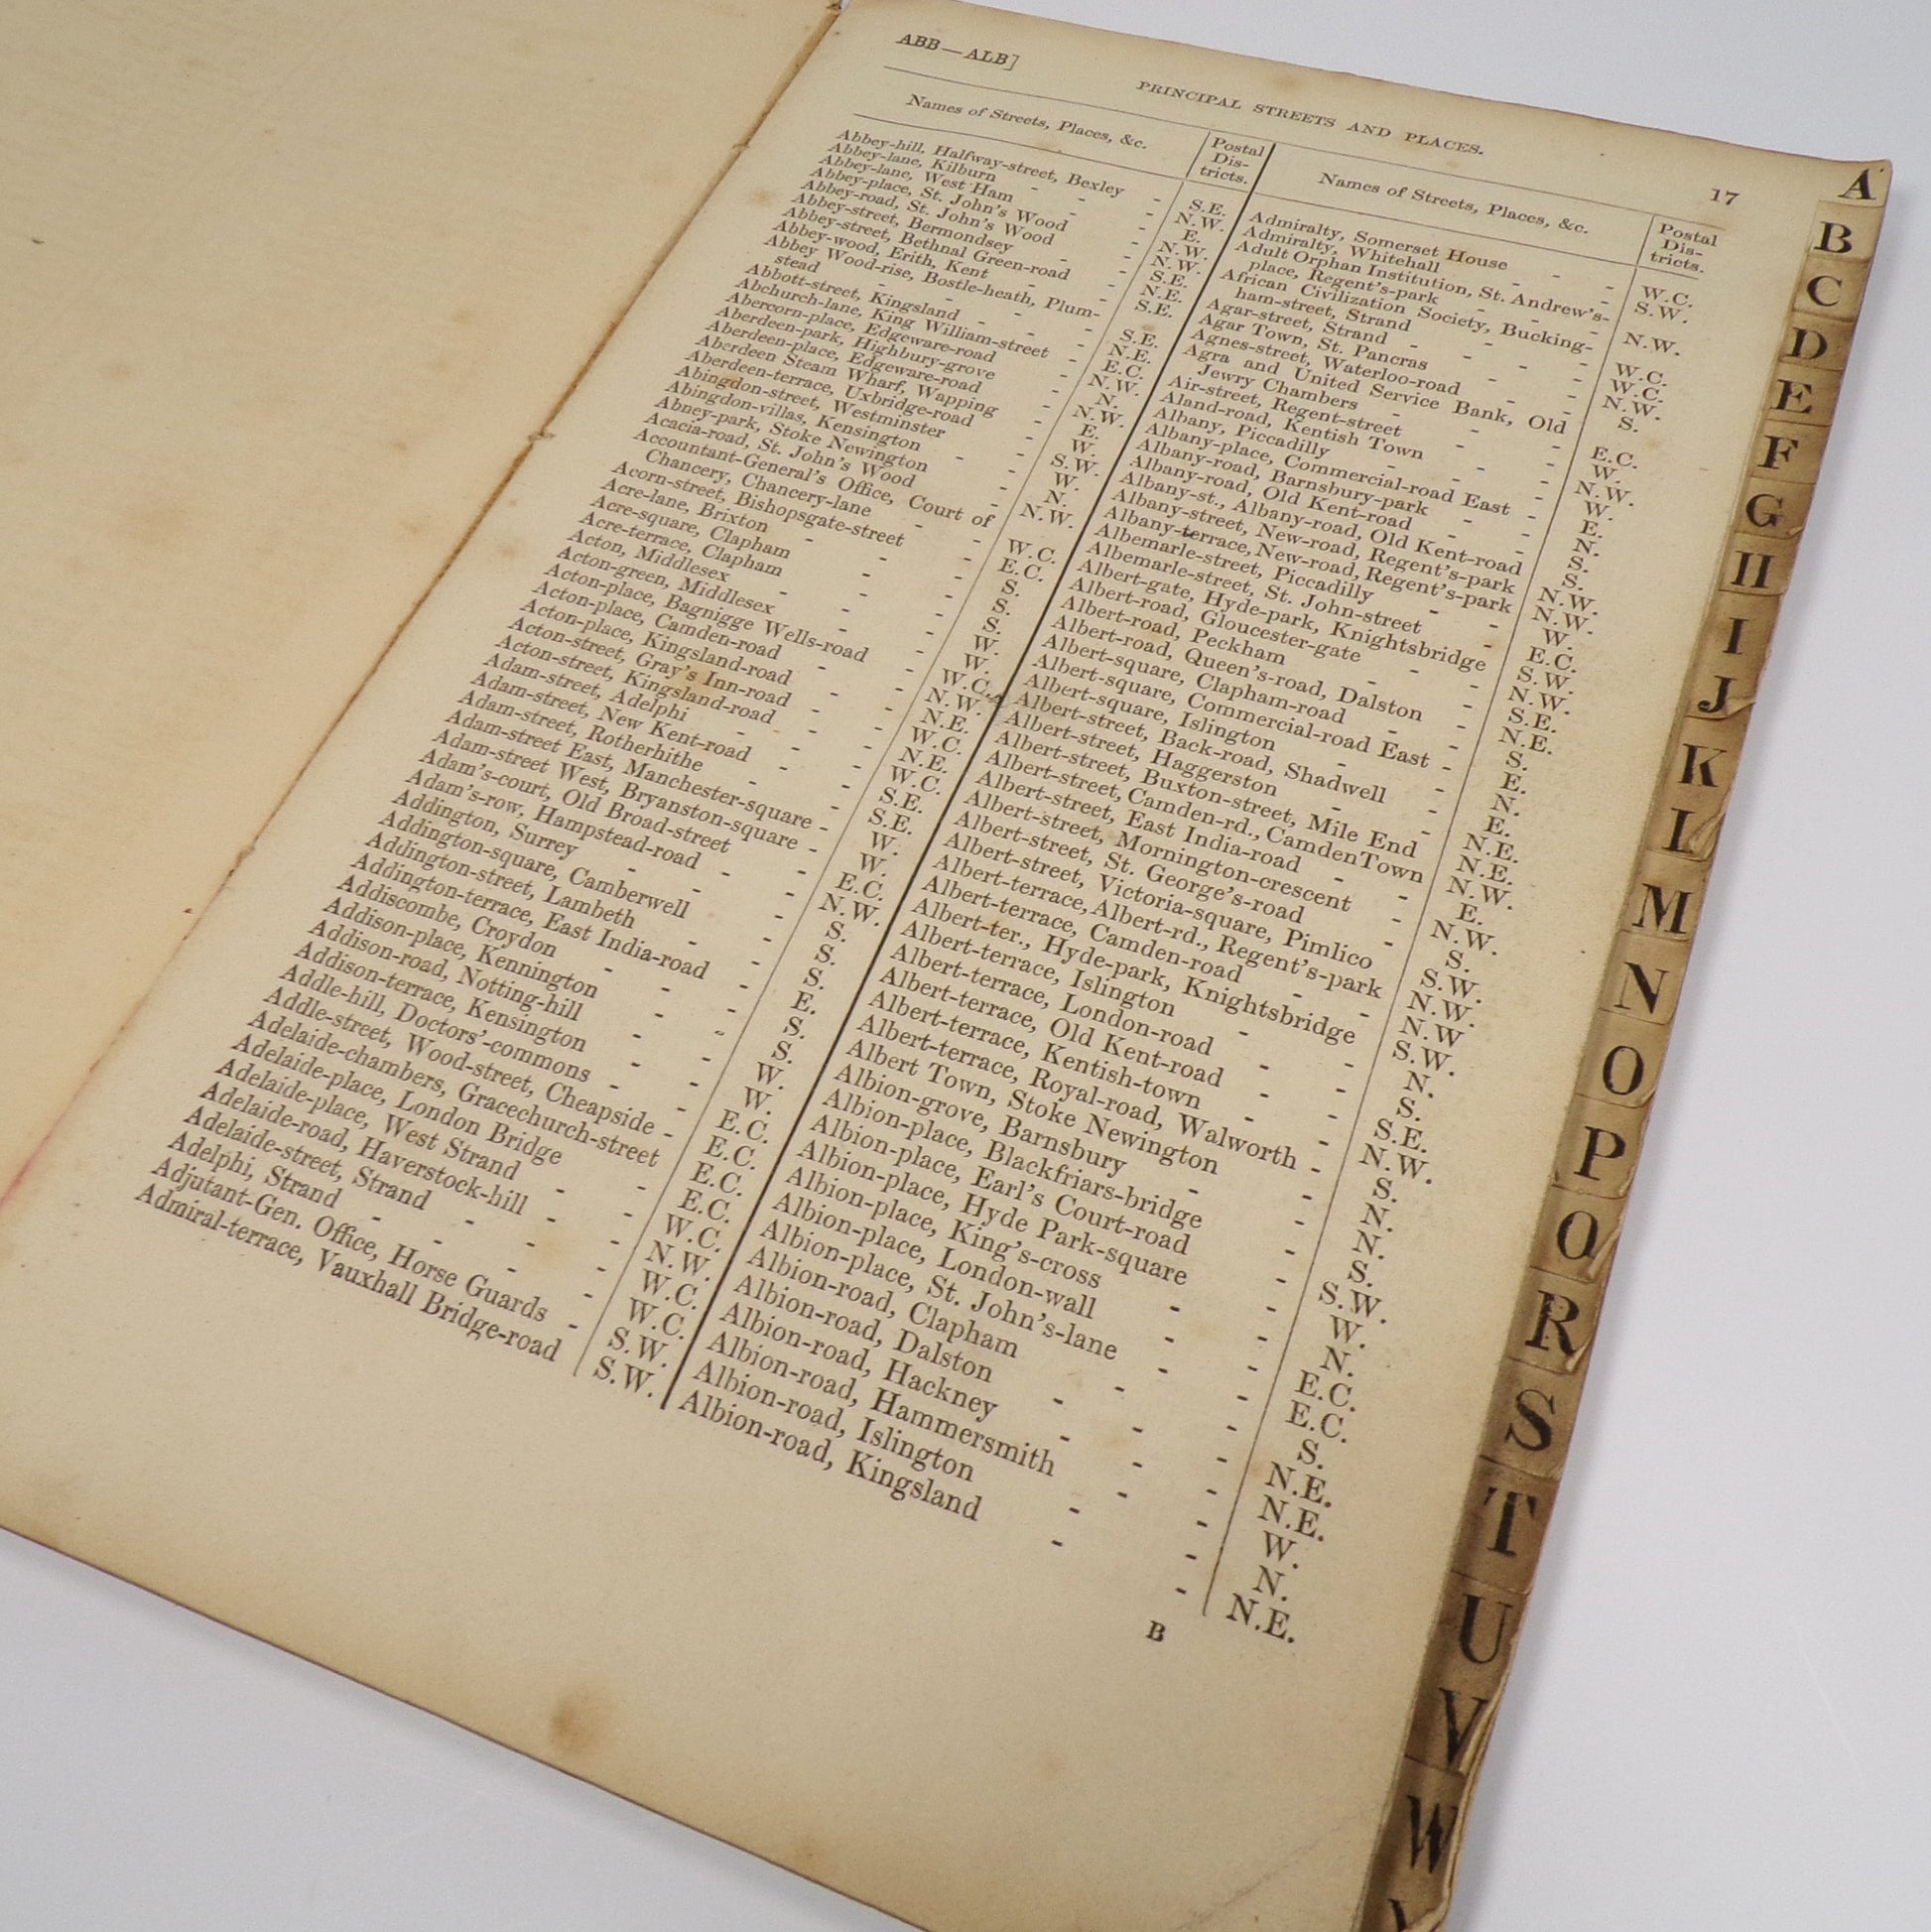 ABB—ALB]
PRINCIPAL STREETS AND PLACES.
17
Names of Streets, Places, &c.
Postal
Dis-
tricts.
Abbey-hill, Halfway-street, Bexley - S.E.
Abbey-lane, Kilburn - - - N.W.
Abbey-lane, West Ham - - E.
Abbey-place, St. John's Wood - N.W.
Abbey-road, St. John's Wood - N.W.
Abbey-street, Bermondsey - - S.E.
Abbey-street, Bethnal Green-road - N.E.
Abbey-wood, Erith, Kent - - S.E.
Abbey Wood-rise, Bostle-heath, Plum-
stead - - - - S.E.
Abbott-street, Kingsland - - N.E.
Abchurch-lane, King William-street - E.C.
Abercorn-place, Edgeware-road - N.W.
Aberdeen-park, Highbury-grove - N.
Aberdeen-place, Edgeware-road - N.W.
Aberdeen Steam Wharf, Wapping - E.
Aberdeen-terrace, Uxbridge-road - W.
Abingdon-street, Westminster - S.W.
Abingdon-villas, Kensington - - W.
Abney-park, Stoke Newington - N.
Acacia-road, St. John's Wood - N.W.
Accountant-General's Office, Court of
Chancery, Chancery-lane - - W.C.
Acorn-street, Bishopsgate-street - E.C.
Acre-lane, Brixton - - - S.
Acre-square, Clapham - - S.
Acre-terrace, Clapham - - S.
Acton, Middlesex - - - W.
Acton-green, Middlesex - - W.
Acton-place, Bagnigge Wells-road - W.C.
Acton-place, Camden-road - - N.W.
Acton-place, Kingsland-road - - N.E.
Acton-street, Gray's Inn-road - - W.C.
Acton-street, Kingsland-road - - N.E.
Adam-street, Adelphi - - - W.C.
Adam-street, New Kent-road - - S.E.
Adam-street, Rotherhithe - - S.E.
Adam-street East, Manchester-square - W.
Adam-street West, Bryanston-square - W.
Adam's-court, Old Broad-street - E.C.
Adam's-row, Hampstead-road - - N.W.
Addington, Surrey - - - S.
Addington-square, Camberwell - S.
Addington-street, Lambeth - - S.
Addington-terrace, East India-road - E.
Addiscombe, Croydon - - - S.
Addison-place, Kennington - - S.
Addison-road, Notting-hill - - W.
Addison-terrace, Kensington - - W.
Addle-hill, Doctors'-commons - - E.C.
Addle-street, Wood-street, Cheapside - E.C.
Adelaide-chambers, Gracechurch-street E.C.
Adelaide-place, London Bridge - - E.C.
Adelaide-place, West Strand - - W.C.
Adelaide-road, Haverstock-hill - - N.W.
Adelaide-street, Strand - - - W.C.
Adelphi, Strand - - - - W.C.
Adjutant-Gen. Office, Horse Guards - S.W.
Admiral-terrace, Vauxhall Bridge-road S.W.
Names of Streets, Places, &c.
Postal
Dis-
tricts.
Admiralty, Somerset House - - W.C.
Admiralty, Whitehall - - - S.W.
Adult Orphan Institution, St. Andrew's-
place, Regent's-park - - N.W.
African Civilization Society, Bucking-
ham-street, Strand - - W.C.
Agar-street, Strand - - - W.C.
Agar Town, St. Pancras - - N.W.
Agnes-street, Waterloo-road - - S.
Agra and United Service Bank, Old
Jewry Chambers - - - E.C.
Air-street, Regent-street - - W.
Aland-road, Kentish Town - - N.W.
Albany, Piccadilly - - - W.
Albany-place, Commercial-road East - E.
Albany-road, Barnsbury-park - - N.
Albany-road, Old Kent-road - - S.
Albany-st., Albany-road, Old Kent-road S.
Albany-street, New-road, Regent's-park N.W.
Albany-terrace, New-road, Regent's-park N.W.
Albemarle-street, Piccadilly - - W.
Albemarle-street, St. John-street - E.C.
Albert-gate, Hyde-park, Knightsbridge S.W.
Albert-road, Gloucester-gate - - N.W.
Albert-road, Peckham - - - S.E.
Albert-road, Queen's-road, Dalston - N.E.
Albert-square, Clapham-road - - S.
Albert-square, Commercial-road East - E.
Albert-square, Islington - - N.
Albert-street, Back-road, Shadwell - E.
Albert-street, Haggerston - - N.E.
Albert-street, Buxton-street, Mile End N.E.
Albert-street, Camden-rd., CamdenTown N.W.
Albert-street, East India-road - - E.
Albert-street, Mornington-crescent - N.W.
Albert-street, St. George's-road - S.
Albert-street, Victoria-square, Pimlico S.W.
Albert-terrace, Albert-rd., Regent's-park N.W.
Albert-terrace, Camden-road - - N.W
Albert-ter., Hyde-park, Knightsbridge S.W.
Albert-terrace, Islington - - N.
Albert-terrace, London-road - - S.
Albert-terrace, Old Kent-road - - S.E.
Albert-terrace, Kentish-town - - N.W.
Albert-terrace, Royal-road, Walworth - S.
Albert Town, Stoke Newington - N.
Albion-grove, Barnsbury - - N.
Albion-place, Blackfriars-bridge - S.
Albion-place, Earl's Court-road - S.W.
Albion-place, Hyde Park-square - W.
Albion-place, King's-cross - - N.
Albion-place, London-wall - - E.C.
Albion-place, St. John's-lane - - E.C.
Albion-road, Clapham - - - S.
Albion-road, Dalston - - - N.E.
Albion-road, Hackney - - - N.E.
Albion-road, Hammersmith - - W.
Albion-road, Islington - - - N.
Albion-road, Kingsland - - - N.E.
B
A
B
C
D
E
F
G
H
I
J
K
L
M
N
O
P
Q
R
S
T
U
V
W